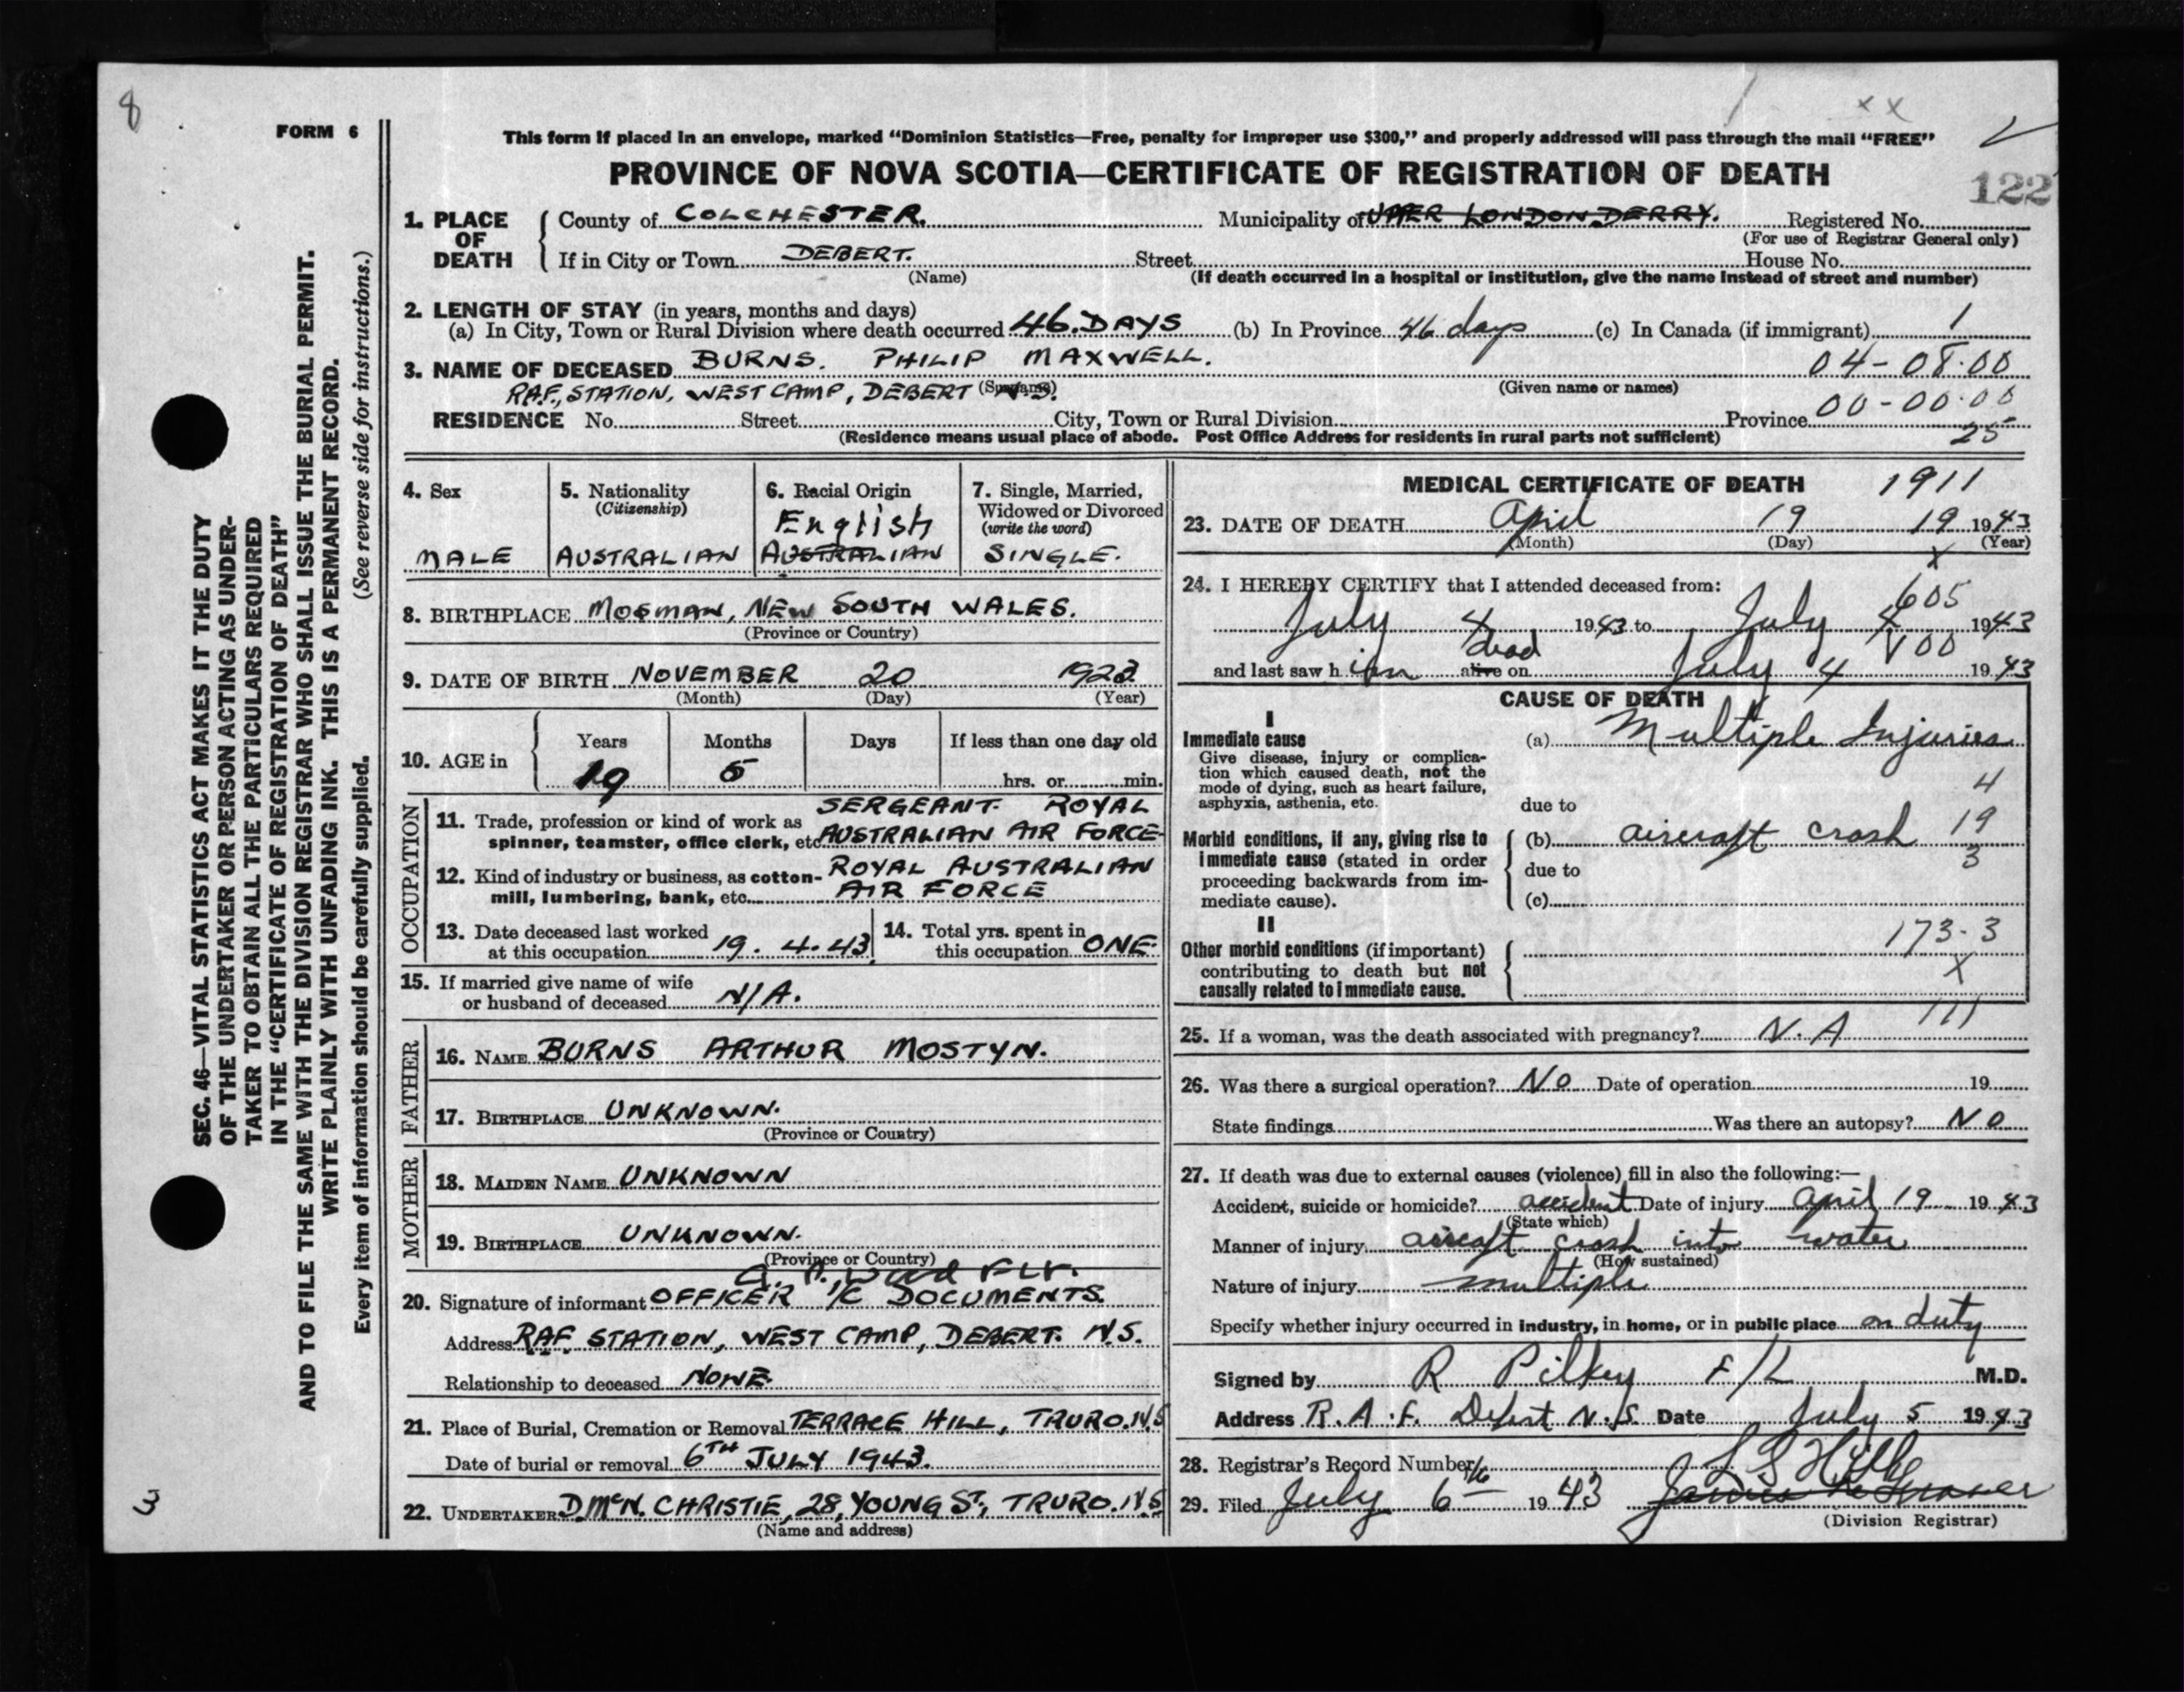 8
FORM 6
This form if placed in an envelope, marked “Dominion Statistics—Free, penalty for improper use $300,” and properly addressed will pass through the mail “FREE”
PROVINCE OF NOVA SCOTIA—CERTIFICATE OF REGISTRATION OF DEATH
122
1. PLACE OF DEATH County of COLCHESTER. Municipality of UPPER LONDONDERRY. Registered No.
(For use of Registrar General only)
If in City or Town DEBERT. Street House No.
(Name) (If death occurred in a hospital or institution, give the name instead of street and number)
2. LENGTH OF STAY (in years, months and days)
(a) In City, Town or Rural Division where death occurred 46. DAYS (b) In Province 46 days (c) In Canada (if immigrant) 1
3. NAME OF DECEASED BURNS. PHILIP MAXWELL. 04-08.00
RAF, STATION, WEST CAMP, DEBERT N.S. (Surname) (Given name or names)
00-00.00
RESIDENCE No. Street City, Town or Rural Division Province
(Residence means usual place of abode. Post Office Address for residents in rural parts not sufficient) 25
4. Sex
MALE
5. Nationality
(Citizenship)
AUSTRALIAN
6. Racial Origin
English
AUSTRALIAN
7. Single, Married,
Widowed or Divorced
(write the word)
SINGLE.
8. BIRTHPLACE MOSMAN, NEW SOUTH WALES.
(Province or Country)
9. DATE OF BIRTH NOVEMBER 20 1923
(Month) (Day) (Year)
10. AGE in Years Months Days If less than one day old
19 5 hrs. or min.
OCCUPATION
11. Trade, profession or kind of work as spinner, teamster, office clerk, etc. SERGEANT. ROYAL
AUSTRALIAN AIR FORCE
12. Kind of industry or business, as cotton-mill, lumbering, bank, etc. ROYAL AUSTRALIAN
AIR FORCE
13. Date deceased last worked
at this occupation 19. 4. 43
14. Total yrs. spent in
this occupation ONE.
15. If married give name of wife
or husband of deceased N/A.
FATHER
16. NAME BURNS ARTHUR MOSTYN.
17. BIRTHPLACE UNKNOWN.
(Province or Country)
MOTHER
18. MAIDEN NAME UNKNOWN
19. BIRTHPLACE UNKNOWN.
(Province or Country)
20. Signature of informant OFFICER I/C DOCUMENTS.
Address RAF STATION, WEST CAMP, DEBERT. N.S.
Relationship to deceased NONE
21. Place of Burial, Cremation or Removal TERRACE HILL, TRURO. N.S
Date of burial or removal 6TH JULY 1943.
22. UNDERTAKER D. McN. CHRISTIE, 28, YOUNG ST., TRURO. N.S
(Name and address)
MEDICAL CERTIFICATE OF DEATH 1911
23. DATE OF DEATH April 19 19 1943
(Month) (Day) (Year)
X
24. I HEREBY CERTIFY that I attended deceased from:
605
July 4 1943 to July 4 1943
dead 00
and last saw him alive on July 4 1943
CAUSE OF DEATH
I
Immediate cause
Give disease, injury or complica-
tion which caused death, not the
mode of dying, such as heart failure,
asphyxia, asthenia, etc.
(a) Multiple Injuries
4
due to
Morbid conditions, if any, giving rise to
immediate cause (stated in order
proceeding backwards from im-
mediate cause).
(b) aircraft crash 19
3
due to
(c)
II
Other morbid conditions (if important)
contributing to death but not
causally related to immediate cause.
173-3
X
111
25. If a woman, was the death associated with pregnancy? N.A
26. Was there a surgical operation? No Date of operation 19
State findings Was there an autopsy? No
27. If death was due to external causes (violence) fill in also the following:—
Accident, suicide or homicide? accident Date of injury April 19 1943
(State which)
Manner of injury aircraft crash into water
(How sustained)
Nature of injury multiple
Specify whether injury occurred in industry, in home, or in public place on duty
Signed by R Pilkey F/L M.D.
Address R.A.F. Debert N.S. Date July 5 1943
28. Registrar's Record Number 16
29. Filed July 6 1943
(Division Registrar)
SEC. 46—VITAL STATISTICS ACT MAKES IT THE DUTY
OF THE UNDERTAKER OR PERSON ACTING AS UNDER-
TAKER TO OBTAIN ALL THE PARTICULARS REQUIRED
IN THE “CERTIFICATE OF REGISTRATION OF DEATH”
AND TO FILE THE SAME WITH THE DIVISION REGISTRAR WHO SHALL ISSUE THE BURIAL PERMIT.
WRITE PLAINLY WITH UNFADING INK. THIS IS A PERMANENT RECORD.
Every item of information should be carefully supplied. (See reverse side for instructions.)
3